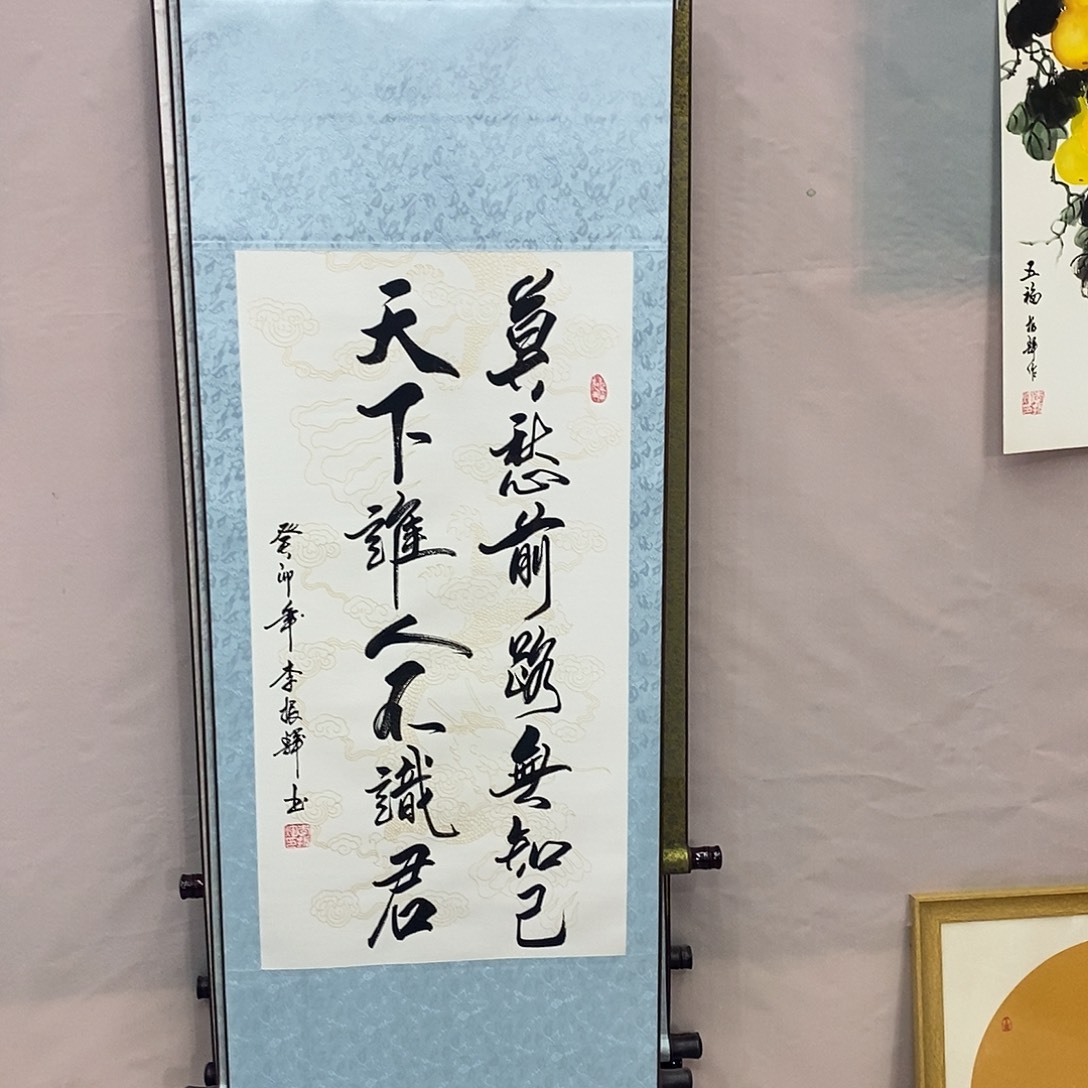 莫愁前路無知己
天下誰人不識君
癸卯年 李振輝书
五福 振輝作